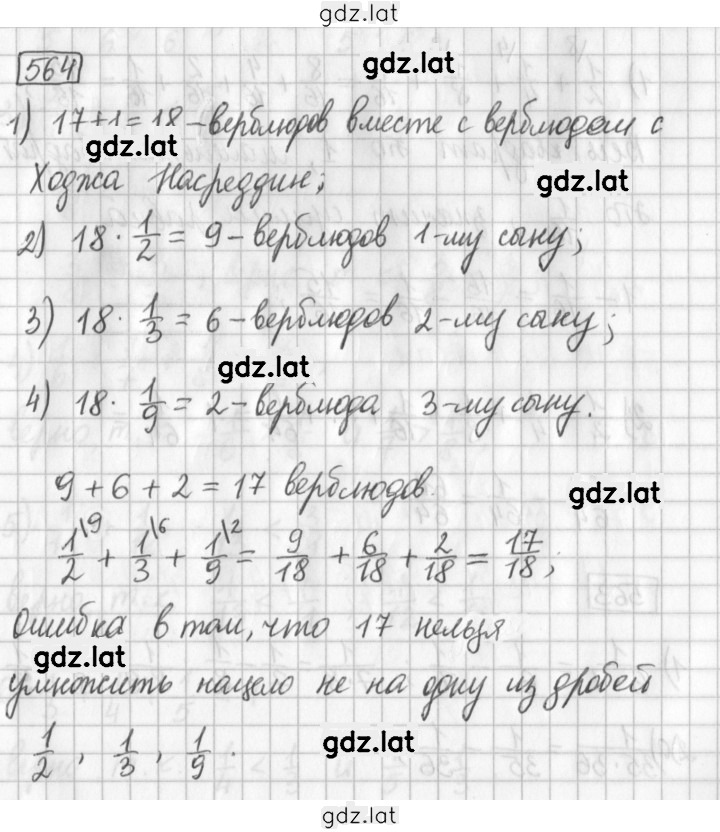 gdz.lat
564
gdz.lat
1) 17+1=18 – верблюдов вместе с верблюдом с
gdz.lat
Ходжа Насреддин;
gdz.lat
2) 18 · 1/2 = 9 – верблюдов 1-му сыну;
3) 18 · 1/3 = 6 – верблюдов 2-му сыну;
gdz.lat
4) 18 · 1/9 = 2 – верблюда 3-му сыну.
9 + 6 + 2 = 17 верблюдов.
gdz.lat
1/2\9 + 1/3\6 + 1/9\2 = 9/18 + 6/18 + 2/18 = 17/18;
Ошибка в том, что 17 нельзя
gdz.lat
умножить нацело не на одну из дробей
1/2, 1/3, 1/9.
gdz.lat
gdz.lat